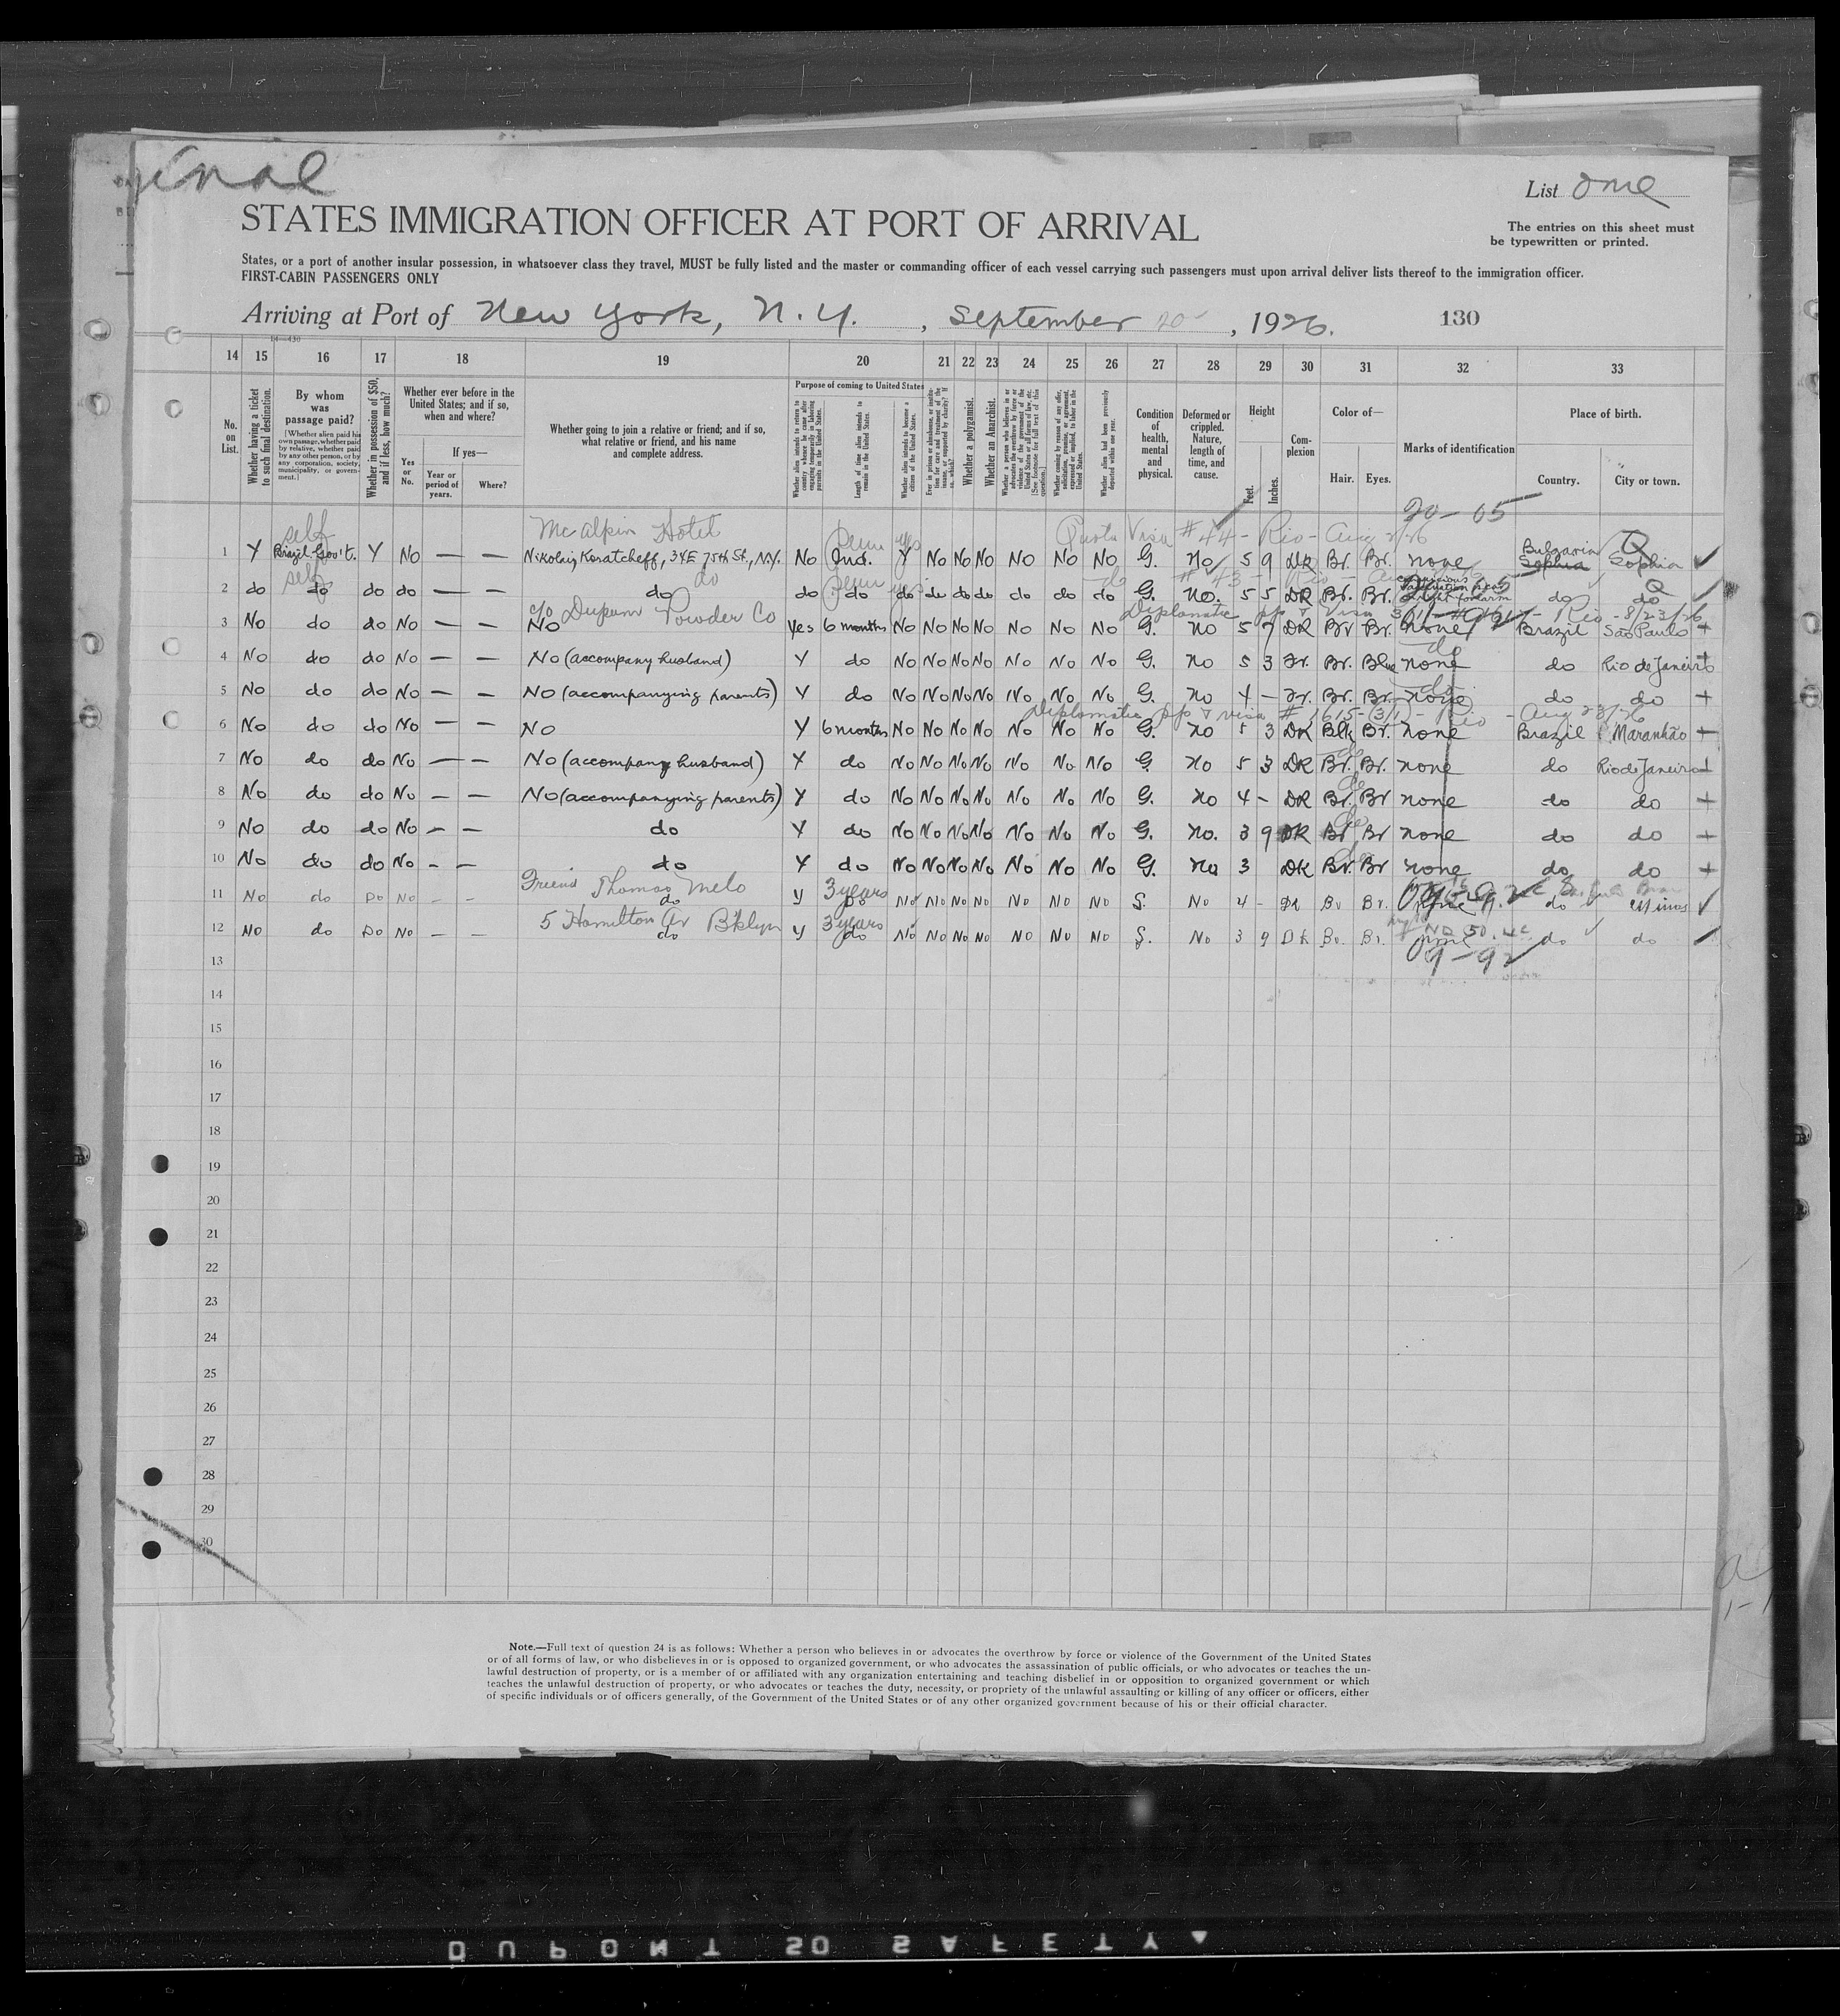 List One
STATES IMMIGRATION OFFICER AT PORT OF ARRIVAL
The entries on this sheet must
be typewritten or printed.
States, or a port of another insular possession, in whatsoever class they travel, MUST be fully listed and the master or commanding officer of each vessel carrying such passengers must upon arrival deliver lists thereof to the immigration officer.
FIRST-CABIN PASSENGERS ONLY
Arriving at Port of New York, N.Y. , September 20 , 1926. 130
14 15 16 17 18 19 20 21 22 23 24 25 26 27 28 29 30 31 32 33
No. on List.
Whether having a ticket to such final destination.
By whom was passage paid?
[Whether alien paid his own passage, whether paid by relative, whether paid by any other person, or by any corporation, society, municipality, or government.]
Whether in possession of $50, and if less, how much?
Whether ever before in the United States; and if so, when and where?
Yes or No.
If yes—
Year or period of years.
Where?
Whether going to join a relative or friend; and if so, what relative or friend, and his name and complete address.
Purpose of coming to United States
Whether alien intends to return to country whence he came after engaging temporarily in laboring pursuits in the United States.
Length of time alien intends to remain in the United States.
Whether alien intends to become a citizen of the United States.
Whether a polygamist.
Whether an Anarchist.
Condition of health, mental and physical.
Deformed or crippled. Nature, length of time, and cause.
Height
Feet. Inches.
Complexion
Color of—
Hair. Eyes.
Marks of identification
Place of birth.
Country. City or town.
20-05
self Mc Alpin Hotel yes Quota Visa #44 - Rio - Aug
1 Y Brazil Gov't. Y No — — Nikolaij Koratcheff, 34E 75th St., N.Y. No Ind. Y No No No No No No G. no 5 9 DR Br. Br. none Bulgaria Sophia Sophia ✓
self do
2 do do do do — — do do do do do do do do do do G. no. 5 5 DR Br. Br. do do ✓
c/o Dupont Powder Co Diplomatic pp & Visa Rio - 8/23/26
3 No do do No — — No Yes 6 months No No No No No No No G. no 5 7 DR Br Br. none Brazil São Paulo +
4 No do do No — — No (accompany husband) Y do No No No No No No No G. no 5 3 Fr. Br. Blue none do Rio de Janeiro +
5 No do do No — — No (accompanying parents) Y do No No No No No No No G. no 4 — Fr. Br. Br. none do do +
Diplomatic pp & visa # 1615 - Rio - Aug 23/26
6 No do do No — — No Y 6 months No No No No No No No G. no 5 3 DR Blk Br. none Brazil Maranhão +
7 No do do No — — No (accompany husband) Y do No No No No No No No G. no 5 3 DR Br. Br. none do Rio de Janeiro +
8 No do do No — — No (accompanying parents) Y do No No No No No No No G. no 4 - DR Br. Br none do do +
9 No do do No — — do Y do No No No No No No No G. no. 3 9 DR Br Br none do do +
10 No do do No - — do Y do No No No No No No No G. no 3 DR Br. Br none do do +
Friend Thomas Melo 3 years
11 No do Do No — — do Y Do No No No No No No No G. No 4 - DR Br Br. do ✓
5 Hamilton Av Bklyn 3 years
12 No do Do No — — do Y do No No No No No No No G. No 3 9 DR Br. Br. do do ✓
13 9-92
14
15
16
17
18
19
20
21
22
23
24
25
26
27
28
29
30
Note.—Full text of question 24 is as follows: Whether a person who believes in or advocates the overthrow by force or violence of the Government of the United States
or of all forms of law, or who disbelieves in or is opposed to organized government, or who advocates the assassination of public officials, or who advocates or teaches the un-
lawful destruction of property, or is a member of or affiliated with any organization entertaining and teaching disbelief in or opposition to organized government or which
teaches the unlawful destruction of property, or who advocates or teaches the duty, necessity, or propriety of the unlawful assaulting or killing of any officer or officers, either
of specific individuals or of officers generally, of the Government of the United States or of any other organized government because of his or their official character.
DUPONT 50 SAFETY